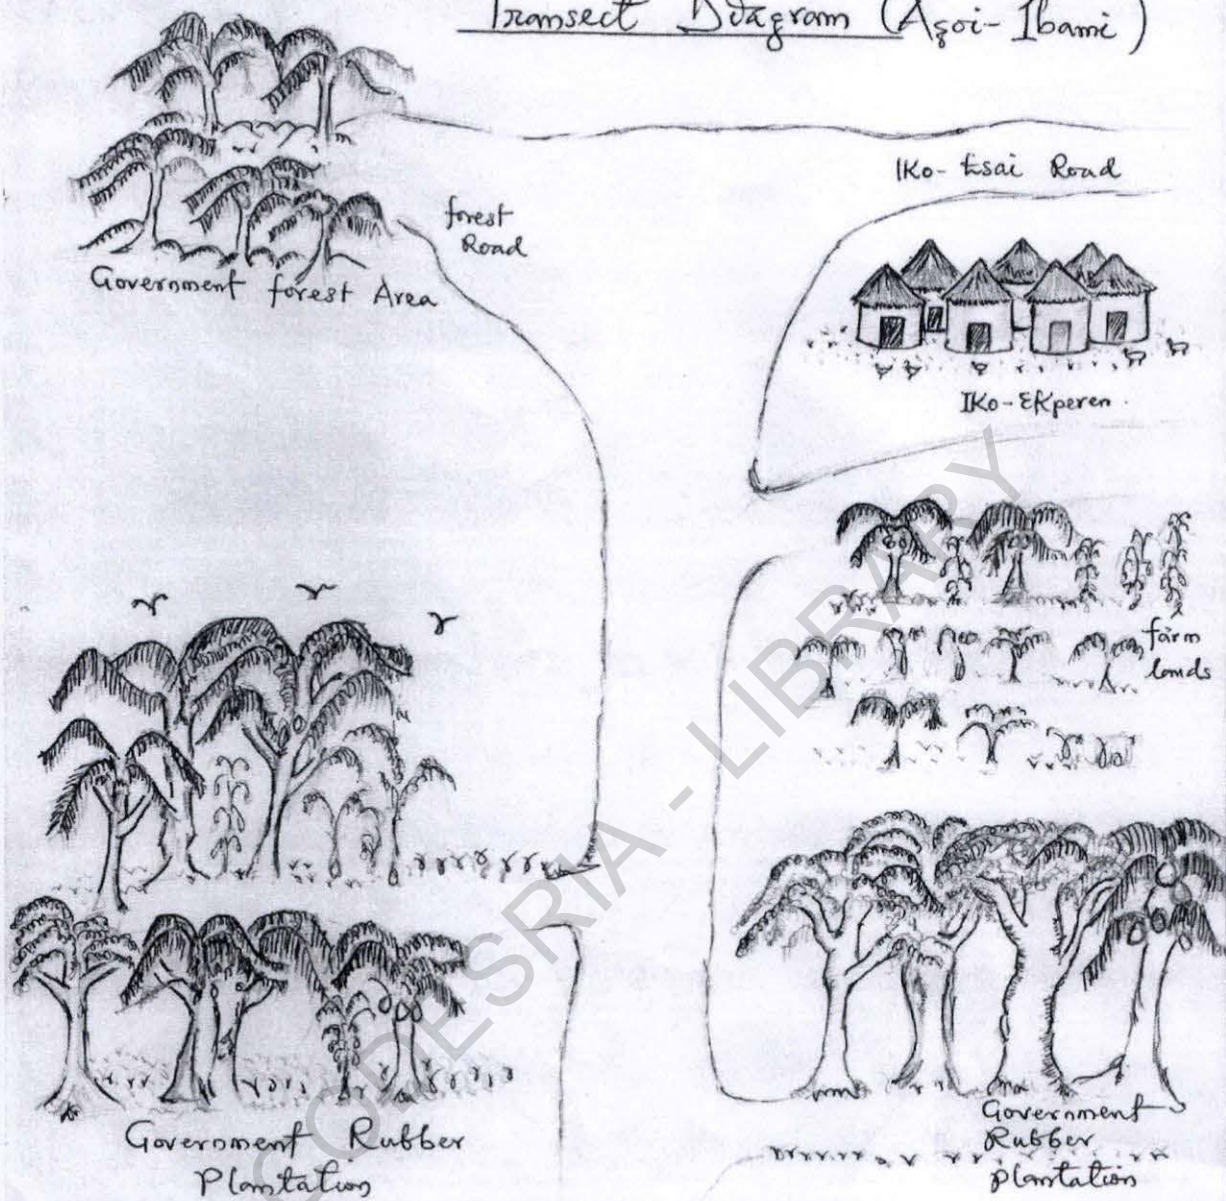 Transect Diagram (Agoi-Ibami)
Iko-Esai Road
forest
Road
Government forest Area
Iko-Ekperen.
farm
lands
Government
Rubber
plantation
Government Rubber
Plantation
CODESRIA - LIBRARY